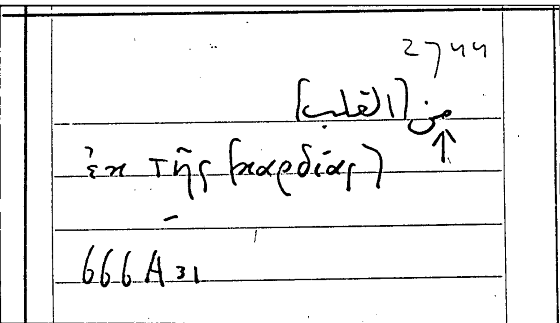 2744
من [القلب]
↑
ἐκ τῆς [καρδίας]
666A31